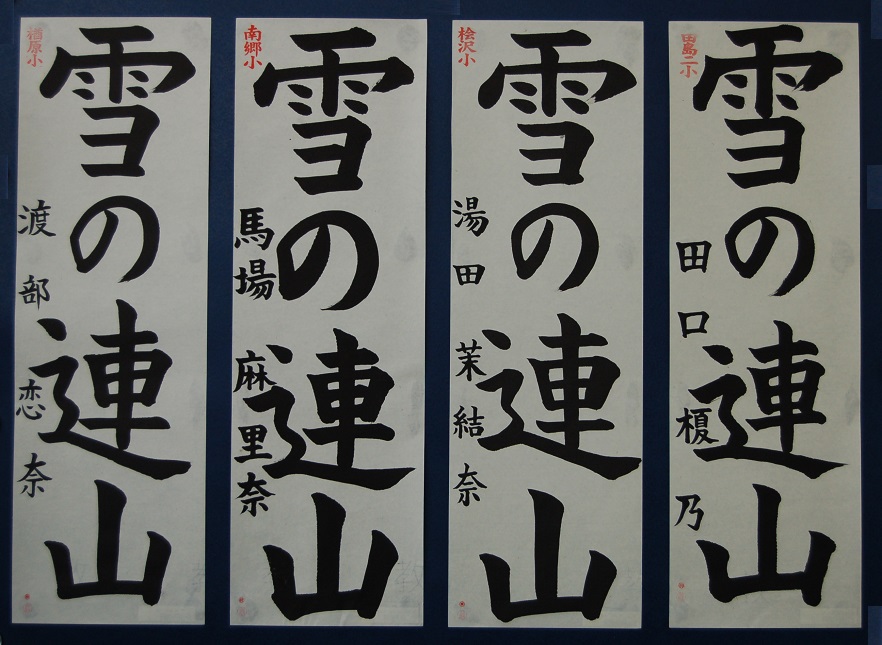 田島二小
雪の連山
田口榎乃
桧沢小
雪の連山
湯田茉結奈
南郷小
雪の連山
馬場麻里奈
檜原小
雪の連山
渡部恋奈